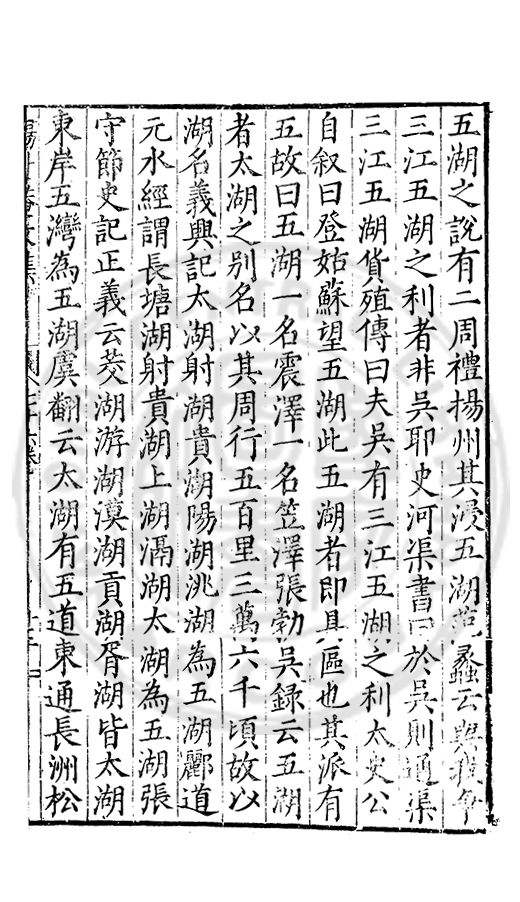 五湖之說有二周禮揚州其浸五湖范蠡云與我爭
三江五湖之利者非吳耶史河渠書曰於吳則通渠
三江五湖貨殖傳曰夫吳有三江五湖之利太史公
自叙曰登姑蘇望五湖此五湖者即具區也其派有
五故曰五湖一名震澤一名笠澤張勃吳録云五湖
者太湖之别名以其周行五百里三萬六千頃故以
湖名義興記太湖射湖貴湖陽湖洮湖為五湖酈道
元水經謂長塘湖射貴湖上湖滆湖太湖為五湖張
守節史記正義云茭湖游湖漠湖貢湖胥湖皆太湖
東岸五灣為五湖虞翻云太湖有五道東通長洲松